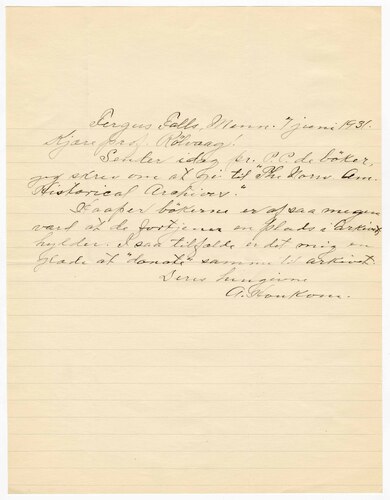 Fergus Falls, Minn. 7 juni 1931.
Kjære prof. Rölvaag!
Sender idag pr. "P.P. de böker,
jeg skrev om at gi til "The Norw. Am.
Historical Archives."
Haaper bökerne er af saa megen
værd at de fortjener en plads i arkivets
hylder. I saa tilfælde er det mig en
glæde at "donate" samme til arkivet.
Deres hengivne
A.